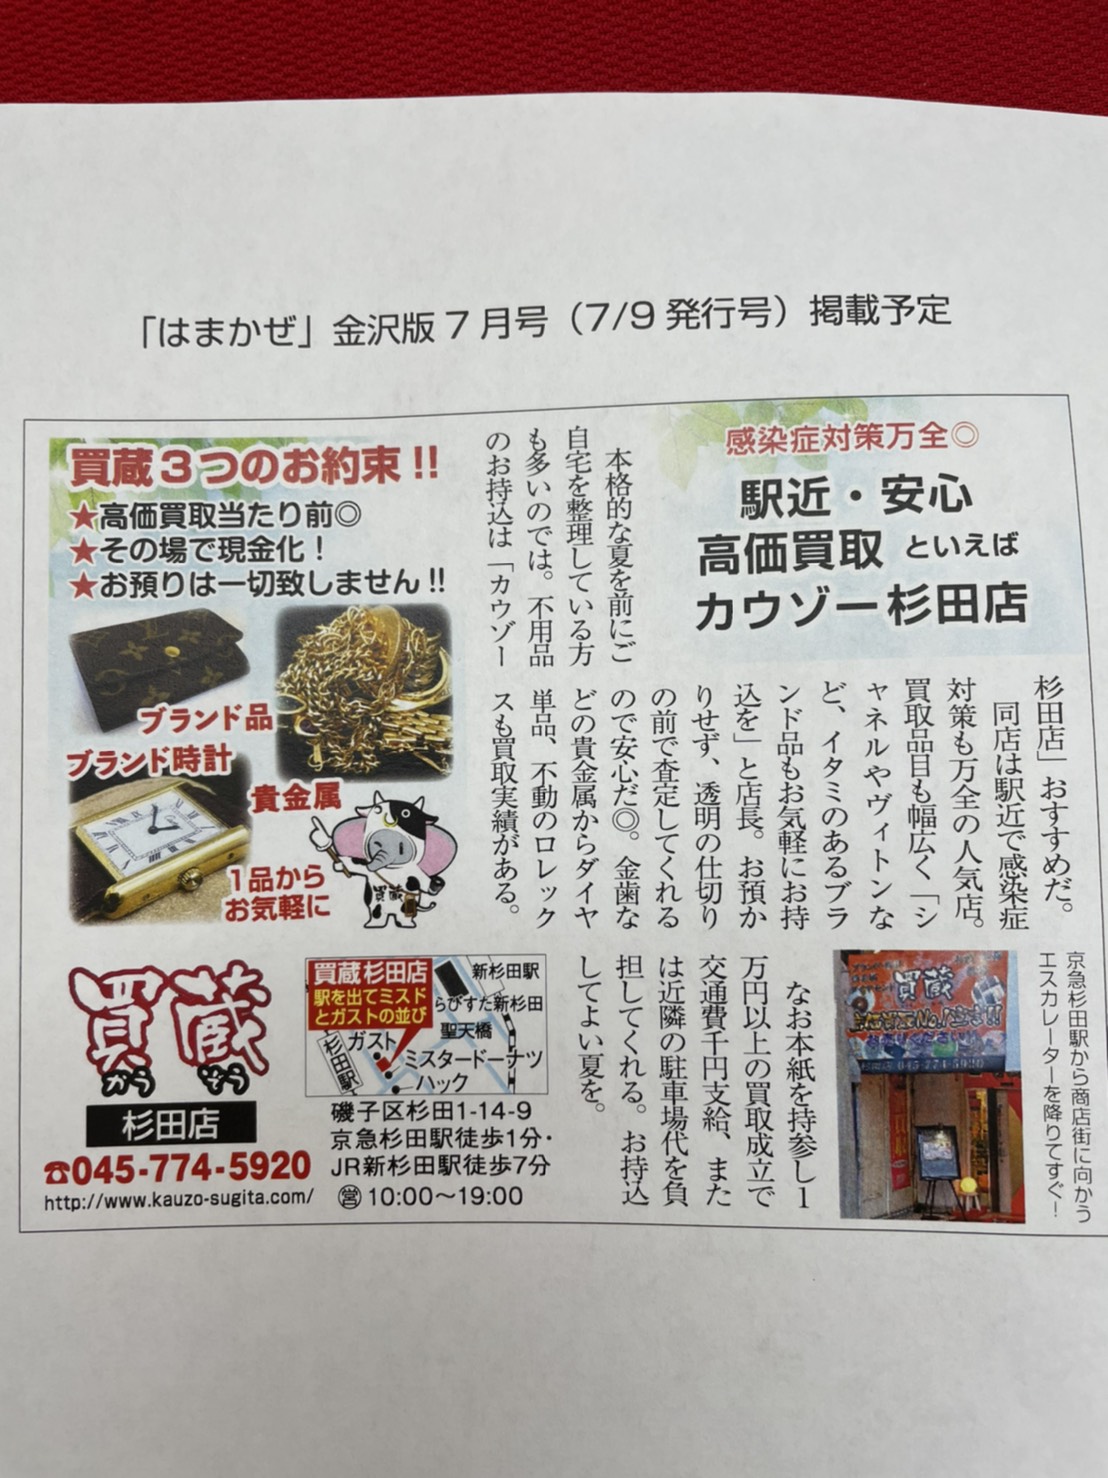 「はまかぜ」金沢版7月号（7/9発行号）掲載予定
感染症対策万全◎
駅近・安心
高価買取といえば
カウゾー杉田店
本格的な夏を前にご
自宅を整理している方
も多いのでは。不用品
のお持込は「カウゾー
杉田店」おすすめだ。
同店は駅近で感染症
対策も万全の人気店。
買取品目も幅広く「シ
ャネルやヴィトンな
ど、イタミのあるブラ
ンド品もお気軽にお持
込を」と店長。お預か
りせず、透明の仕切り
の前で査定してくれる
ので安心だ◎。金歯な
どの貴金属からダイヤ
単品、不動のロレック
スも買取実績がある。
なお本紙を持参し1
万円以上の買取成立で
交通費千円支給、また
は近隣の駐車場代を負
担してくれる。お持込
してよい夏を。
買蔵3つのお約束!!
★高価買取当たり前◎
★その場で現金化！
★お預りは一切致しません!!
ブランド品
ブランド時計
貴金属
1品から
お気軽に
買蔵
買蔵
かう ぞう
杉田店
☎045-774-5920
http://www.kauzo-sugita.com/
買蔵杉田店
駅を出てミスド
とガストの並び
新杉田駅
らびすた新杉田
聖天橋
ガスト
杉田駅
ミスタードーナツ
ハック
磯子区杉田1-14-9
京急杉田駅徒歩1分・
JR新杉田駅徒歩7分
営10:00〜19:00
買蔵
045-774-5920
京急杉田駅から商店街に向かう
エスカレーターを降りてすぐ！